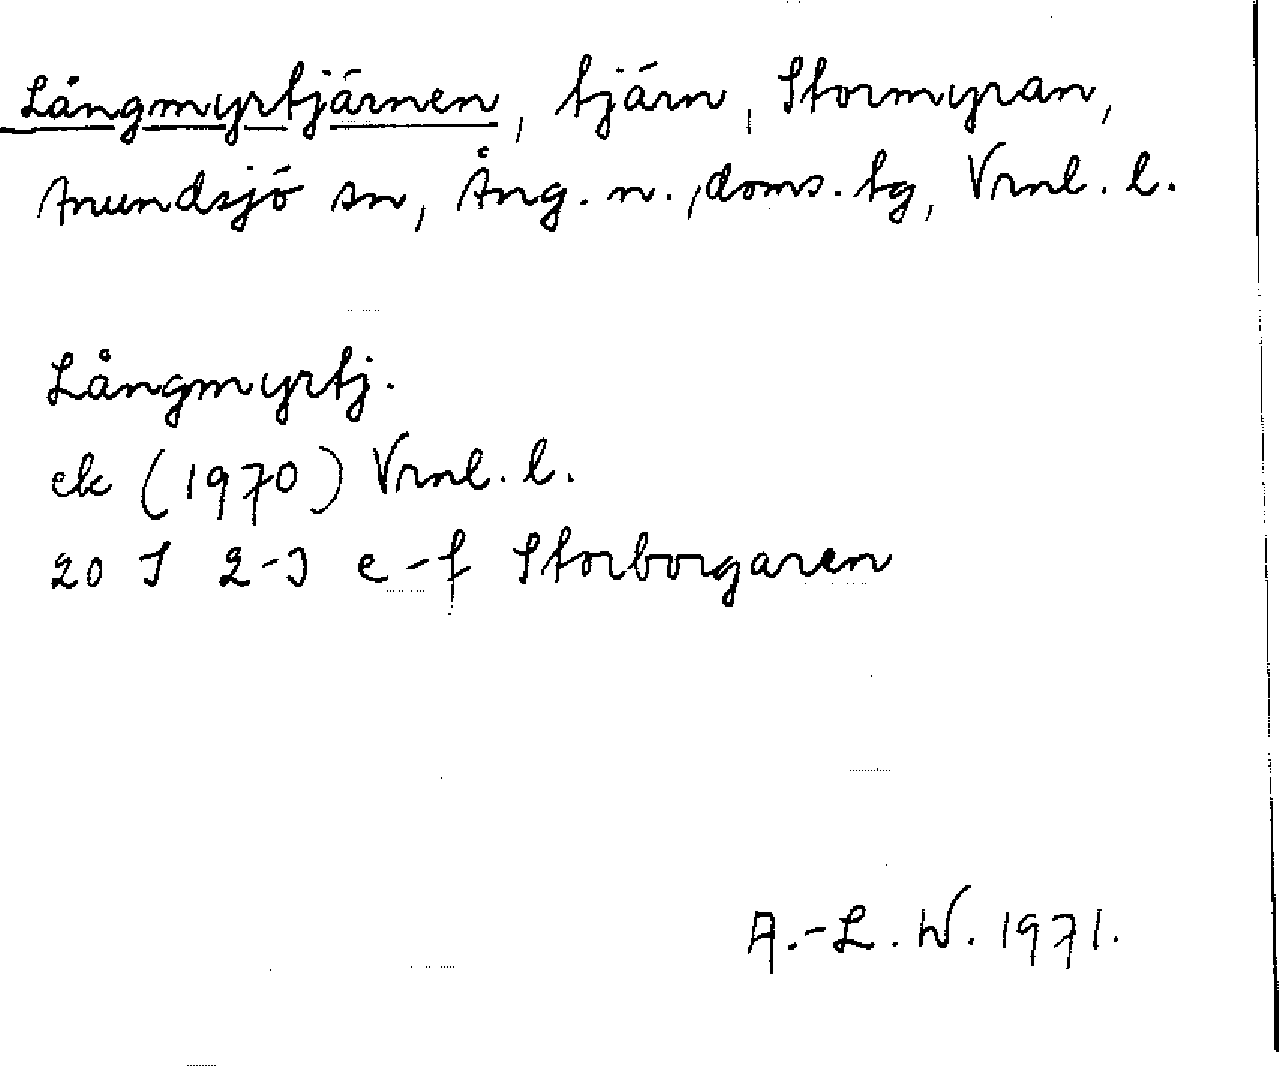 Långmyrtjärnen, tjärn, Stormyran,
Anundsjö sn, Ång. n., doms. tg, Vrnl. l.
Långmyrtj.
ek (1970) Vrnl. l.
20 I 2-3 e-f Storborgaren
A.-L. W. 1971.